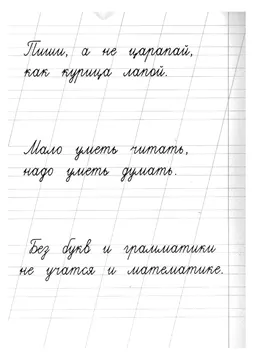 Пиши, а не царапай,
как курица лапой.
Мало уметь читать,
надо уметь думать.
Без букв и грамматики
не учатся и математике.